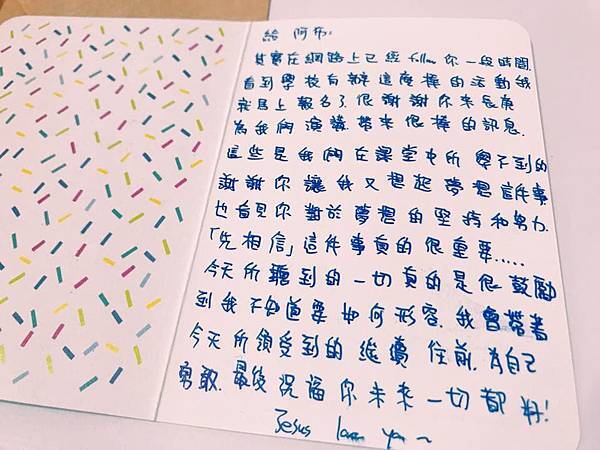 給 阿布:
其實在網路上已經 follow 你一段時間
看到學校有辦這麼棒的活動我
就馬上報名了.很謝謝你來長庚
為我們演講帶來很棒的訊息.
這些是我們在課堂中所學不到的
謝謝你讓我又想起夢想這件事
也看見你對於夢想的堅持和努力.
「先相信」這件事真的很重要.....
今天所聽到的一切真的是很鼓勵
到我不知道要如何形容.我會帶著
今天所領受到的繼續往前.為自己
勇敢.最後祝福你未來一切都好!
Jesus loves you~